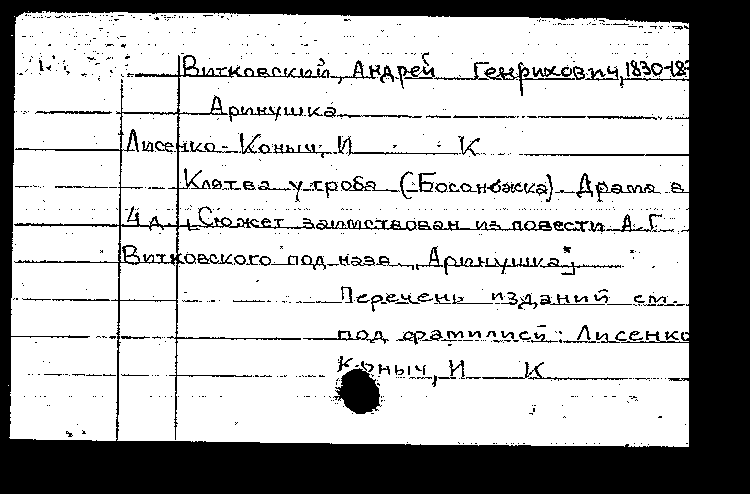 Витковский, Андрей Генрихович, 1830-18
Аринушка.
Лисенко-Коныч, И К
Клятва у гроба (Босоножка). Драма в
4 д. Сюжет заимствован из повести А.Г.
Витковского под назв. „Аринушка"]
Перечень изданий см.
под фамилией: Лисенко
Коныч, И К